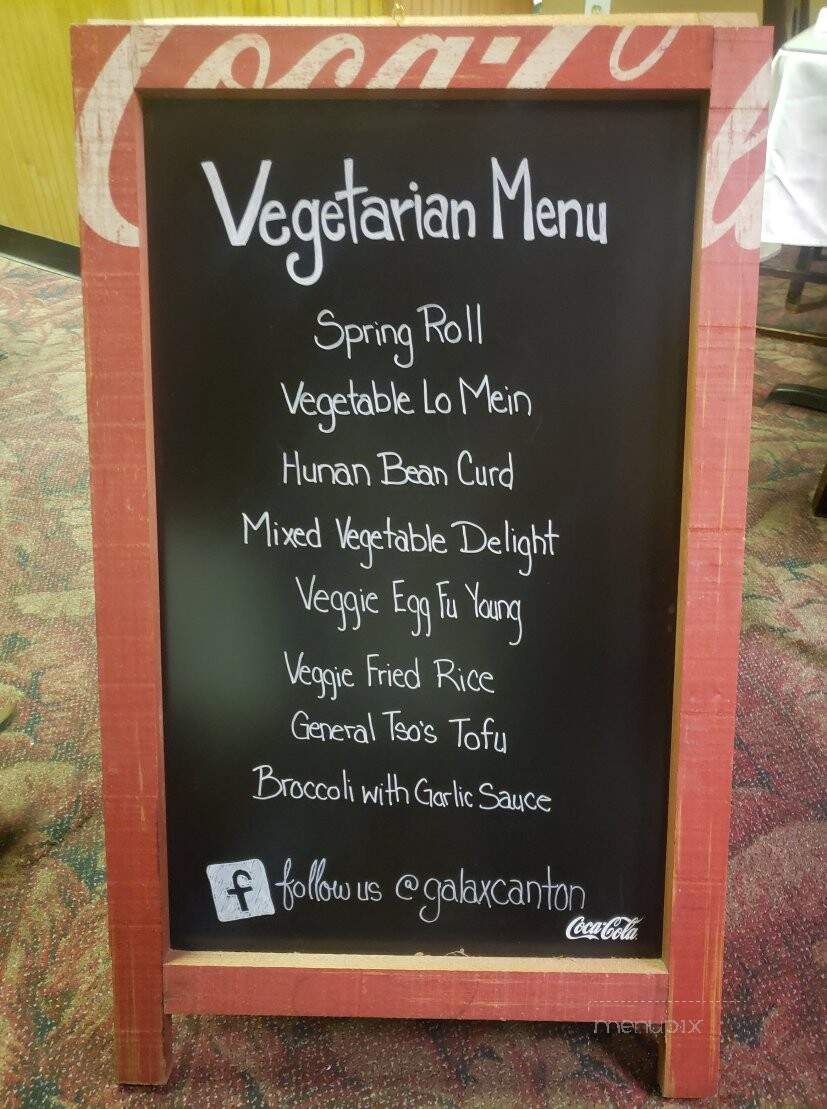 Coca-C
Vegetarian Menu
Spring Roll
Vegetable Lo Mein
Hunan Bean Curd
Mixed Vegetable Delight
Veggie Egg Fu Young
Veggie Fried Rice
General Tso's Tofu
Broccoli with Garlic Sauce
f follow us @galaxcanton
Coca-Cola
menupix